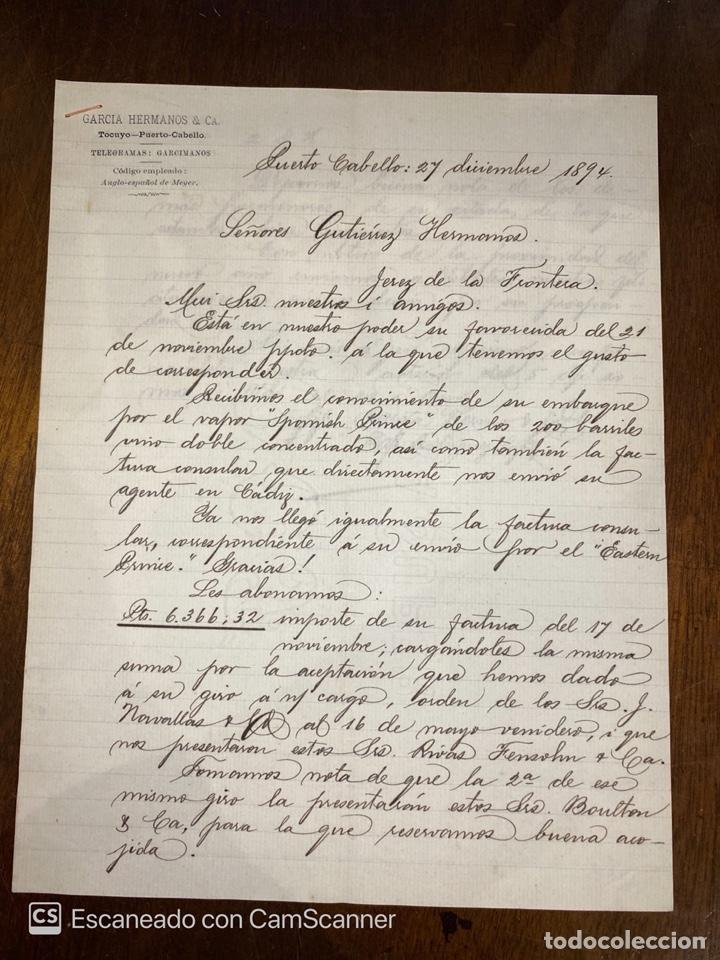 GARCIA HERMANOS & CA.
Tocuyo—Puerto-Cabello.
TELEGRAMAS: GARCIMANOS
Código empleado:
Anglo-español de Meyer.
Puerto Cabello: 27 diciembre 1894.
Señores Gutiérrez Hermanos.
Jerez de la Frontera.
Mui Srs. nuestros i amigos.
Está en nuestro poder su favorecida del 21
de noviembre ppdo. á la que tenemos el gusto
de corresponder.
Recibimos el conocimiento de su embarque
por el vapor "Spanish Prince" de los 200 barriles
vino doble concentrado, así como también la fac-
tura consular que directamente nos envió su
agente en Cádiz.
Ya nos llegó igualmente la factura consu-
lar, correspondiente á su envío por el "Eastern
Prince." Gracias!
Les abonamos:
Pts. 6.366;32 importe de su factura del 17 de
noviembre; cargándoles la misma
suma por la aceptación que hemos dado
á su giro á n/ cargo, orden de los Srs. J.
Navallas & al 16 de mayo venidero, i que
nos presentaron estos Srs. Rivas Fensohn & Ca.
Tomamos nota de que la 2ª de ese
mismo giro la presentarán estos Srs. Boulton
& Ca, para la que reservamos buena aco-
jida.
CS Escaneado con CamScanner
todocoleccion